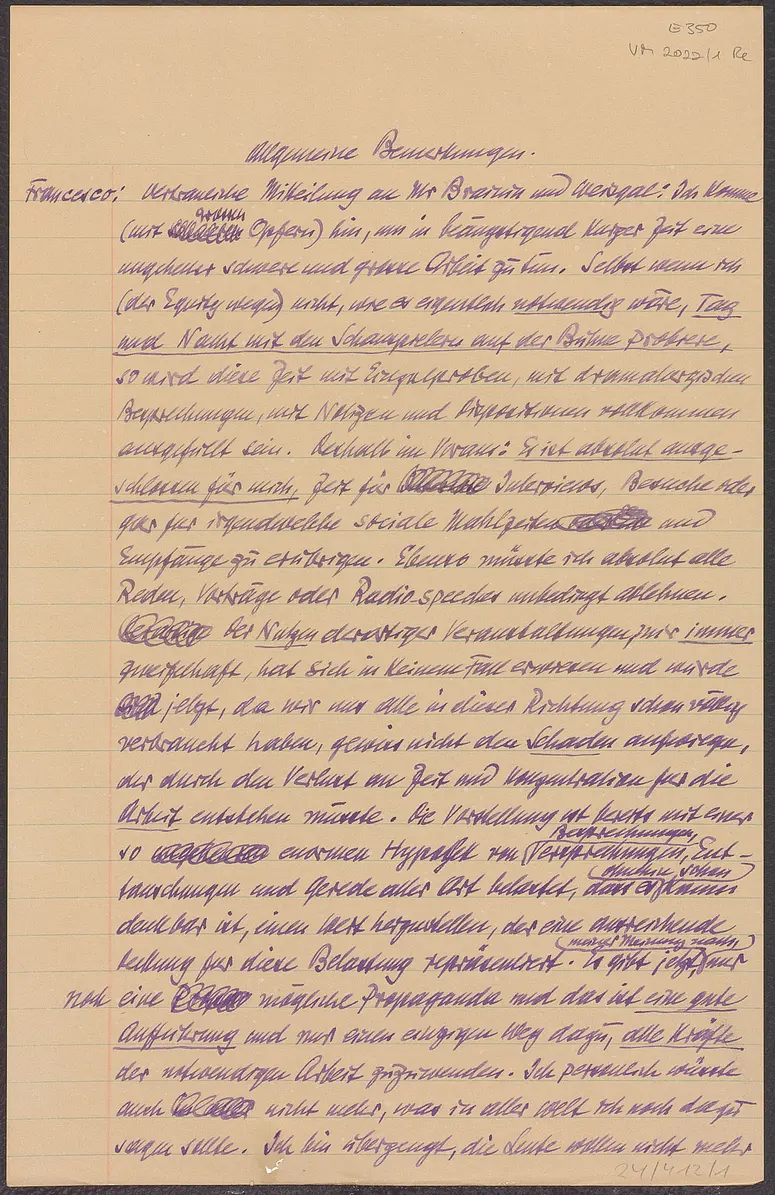 E 350
VM 2022/1 Re
Allgemeine Bemerkungen.
Francesco: Vertrauliche Mitteilung an Mr Brainin und Weisgal: Ich komme
grossen
(mit Opfern) hin, um in beängstigend kurzer Zeit eine
ungeheuer schwere und grosse Arbeit zu tun. Selbst wenn ich
(der Equity wegen) nicht, wie es eigentlich notwendig wäre, Tag
und Nacht mit den Schauspielern auf der Bühne probiere,
so wird diese Zeit mit Einzelproben, mit dramaturgischen
Besprechungen, mit Notizen und Dispositionen vollkommen
ausgefüllt sein. Deshalb im Voraus: Es ist absolut ausge-
schlossen für mich, Zeit für Interviews, Besuche oder
gar für irgendwelche sociale Mahlzeiten und
Empfänge zu erübrigen. Ebenso müsste ich absolut alle
Reden, Vorträge oder Radiospeeches unbedingt ablehnen.
Der Nutzen derartiger Veranstaltungen, mir immer
zweifelhaft, hat sich in keinem Fall erwiesen und würde
jetzt, da wir uns alle in dieser Richtung schon völlig
verbraucht haben, gewiss nicht den Schaden aufwiegen,
der durch den Verlust an Zeit und Konzentration für die
Arbeit entstehen müsste. Die Vorstellung ist bereits mit einer
Besprechungen,
so enormen Hypothek von Versprechungen, Ent-
ohnehin schon
täuschungen und Gerede aller Art belastet, dass es kaum
denkbar ist, einen Wert herzustellen, der eine ausreichende
meiner Meinung nach
Deckung für diese Belastung repräsentiert. Es gibt jetzt nur
noch eine mögliche Propaganda und das ist eine gute
Aufführung und nur einen einzigen Weg dazu, alle Kräfte
der notwendigen Arbeit zuzuwenden. Ich persönlich wüsste
auch nicht mehr, was in aller Welt ich noch dazu
sagen sollte. Ich bin überzeugt, die Leute wollen nicht mehr
24/412/1